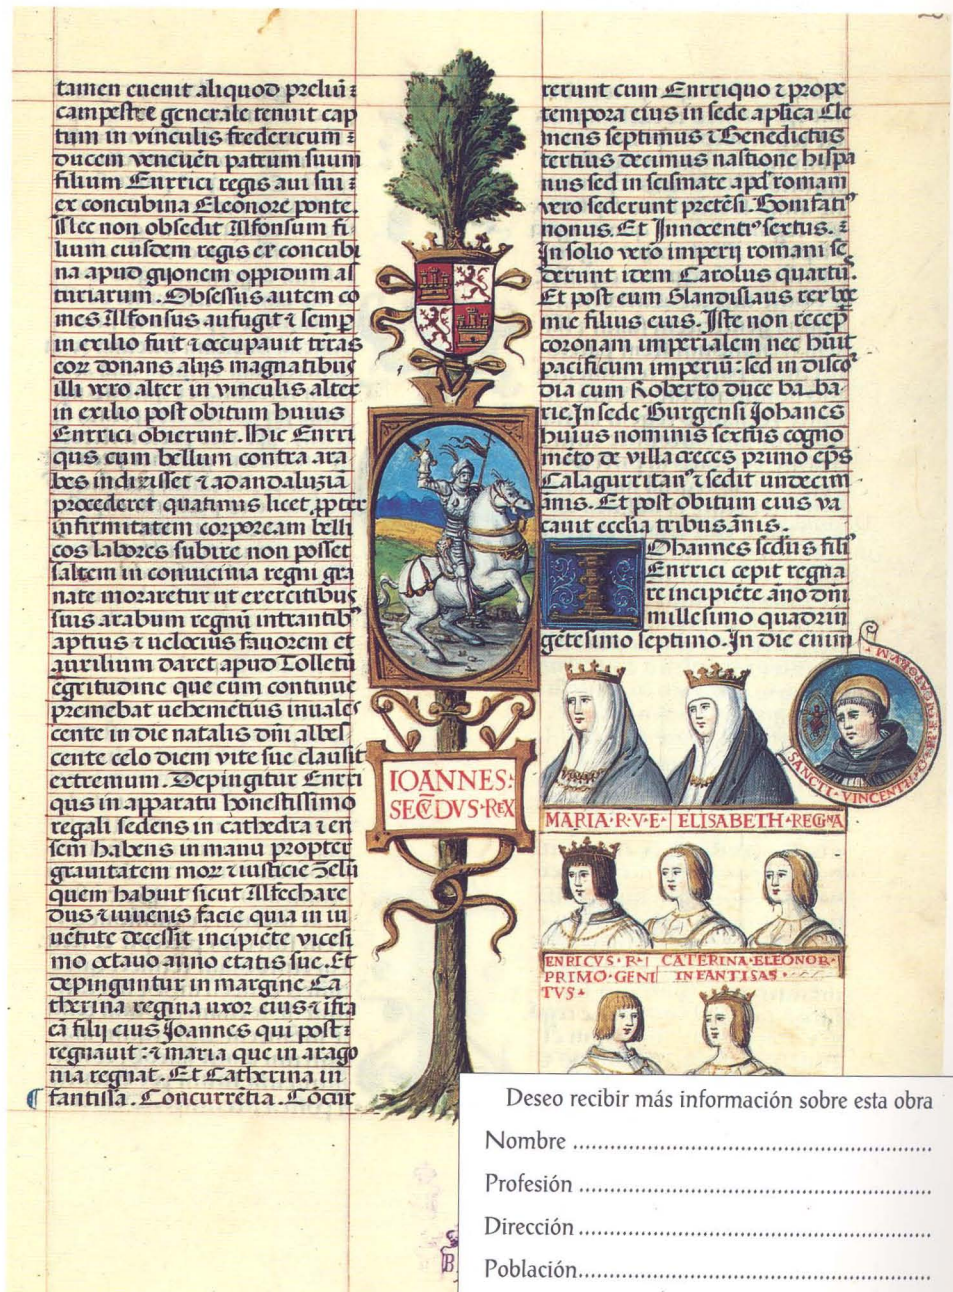 tamen euenit aliquod preluı̄ ꝛ
campestre generale tenuit cap
tum in vinculis fredericum ꝛ
ducem veneuēti patrum suum
filium Enrrici regis aui sui ꝛ
ex concubina Eleonore ponte.
Nec non obsedit Alfonsum fi
lium eiusdem regis ex concubi
na apud gijonem oppidum as
turiarum. Obsessus autem co
mes Alfonsus aufugit ⁊ semꝑ
in exilio fuit ⁊ occupauit trras
eoꝛ donans alijs magnatibus
illi vero alter in vinculis alter
in exilio post obitum huius
Enrrici obierunt. Hic Enrri
qus cum bellum contra ara
bes indixisset ⁊ ad andaluziā
procederet quatinus licet ꝓpter
infirmitatem corpoream belli
cos labores subire non posset
saltem in conuicinia regni gra
nate moraretur ut exercitibus
suis arabum regnū intrantibꝰ
aptius ⁊ uelocius fauorem et
auxilium daret apud Tolletū
egritudine que eum continue
premebat uehemētius inuales
cente in die natalis dn̄i albes
cente celo diem vite sue clausit
extremum. Depingitur Enrri
qus in apparatu honestissimo
regali sedens in cathedra ⁊ en
sem habens in manu propter
grauitatem moꝛ ⁊ iusticie zelū
quem habuit sicut Alfechare
dus ⁊ iuuenis facie quia in iu
uētute decessit incipiēte vicesi
mo octauo anno etatis sue. Et
depinguntur in margine Ca
therina regina uxor eius ⁊ īfra
eā filij eius Joannes qui post ꝛ
regnauit : ⁊ maria que in arago
nia regnat. Et Catherina in
fantissa. Concurrētia. Cōcur
rerunt cum Enrriquo ⁊ prope
tempora eius in sede apl̄ica Cle
mens septimus ⁊ Benedictus
tertius decimus nastione hispa
nus sed in scismate apd̄ romam
vero sederunt pretēsi. Bonifatiꝰ
nonus. Et Innocentiꝰ sextus. ꝛ
In solio vero imperij romani se
derunt idem Carolus quartuꝰ.
Et post eum Glandislaus rex boe
mie filius eius. Iste non recep̄
coronam imperialem nec huit
pacificum imperiū : sed in discoꝰ
dia cum Roberto duce ba.ba.
rie. In sede Burgensi Johanes
huius nominis sextus cogno
mēto de villacreces primo ep̄s
Calagurritanꝰ ⁊ sedit undecim
ānis. Et post obitum eius va
cauit ecclia tribus ānis.
IOhannes scd̄us filiꝰ
Enrrici cepit regna
re incipiēte āno dn̄i
millesimo quadrin
gētesimo septimo. In die enim
IOANNES:
SECV̄DVS·REX
SANCTI·VINCENTII·
MARIA·R·V·E· ELISABETH·REGINA
ENRICVS·R·I CATERINA·ELEONOR·
PRIMO·GENI INFANTISAS·
TVS·
Deseo recibir más información sobre esta obra
Nombre ....................
Profesión ....................
Dirección ....................
Población....................